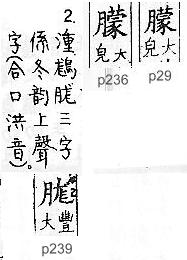 朦 大皃
p29
朦 大皃
p236
2. 湩三字
係冬韵上聲
字(合口洪音)。
大豐
p239